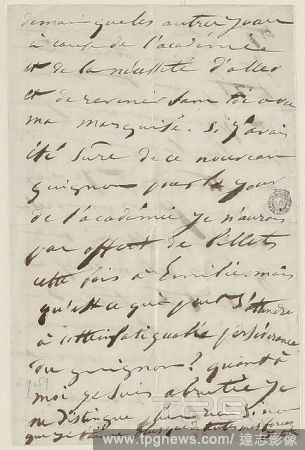 demain que les autres jours
à cause de l'académie
et de la nécessité d'aller
et de revenir sans toi avec
ma marquise. Si j'avais
été sûre de ce nouveau
guignon pour le jour
de l'académie je n'aurais
pas offert de billets
cette fois à Emilie mais
qu'est ce que peut s'attendre
à cette infatigable persévérance
du guignon? quant à
moi je suis abrutie je
ne distingue plus rien sinon
que je t'aime plus que toutes mes forces
www.tpgnews.com/ 達志影像